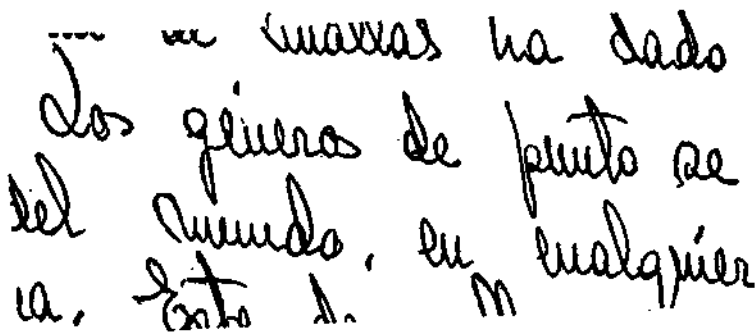 ha dado
Los géneros de punto se
del mundo, en cualquier
ia. Esto de M